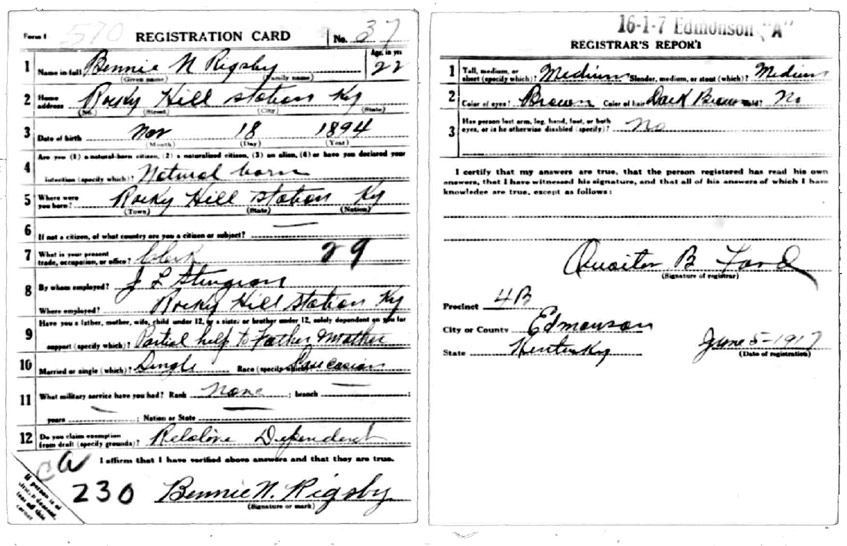 Form 1 570 REGISTRATION CARD No. 37
1 Name in full Bennie N Rigsby Age, in yrs 22
(Given name) (Family name)
2 Home address Rocky Hill station Ky
(No.) (Street) (City) (State)
3 Date of birth Nov 18 1894
(Month) (Day) (Year)
4 Are you (1) a natural-born citizen, (2) a naturalized citizen, (3) an alien, (4) or have you declared your
intention (specify which)? Natural born
5 Where were you born? Rocky Hill station Ky
(Town) (State) (Nation)
6 If not a citizen, of what country are you a citizen or subject?
7 What is your present trade, occupation, or office? Clerk 29
8 By whom employed? J L Sturgeon
Where employed? Rocky Hill Station Ky
9 Have you a father, mother, wife, child under 12, or a sister or brother under 12, solely dependent on you for
support (specify which)? Partial help to Father Mother
10 Married or single (which)? Single Race (specify which)? Caucasian
11 What military service have you had? Rank None ; branch ;
years ; Nation or State
12 Do you claim exemption from draft (specify grounds)? Relative Dependent
I affirm that I have verified above answers and that they are true.
230 Bennie N. Rigsby
(Signature or mark)
16-1-7 Edmonson "A"
REGISTRAR'S REPORT
1 Tall, medium, or short (specify which)? Medium Slender, medium, or stout (which)? Medium
2 Color of eyes? Brown Color of hair? Dark Brown Bald? No
3 Has person lost arm, leg, hand, foot, or both eyes, or is he otherwise disabled (specify)? No
I certify that my answers are true, that the person registered has read his own
answers, that I have witnessed his signature, and that all of his answers of which I have
knowledge are true, except as follows:
B Ford
(Signature of registrar)
Precinct 4B
City or County Edmonson
State Kentucky June 5-1917
(Date of registration)